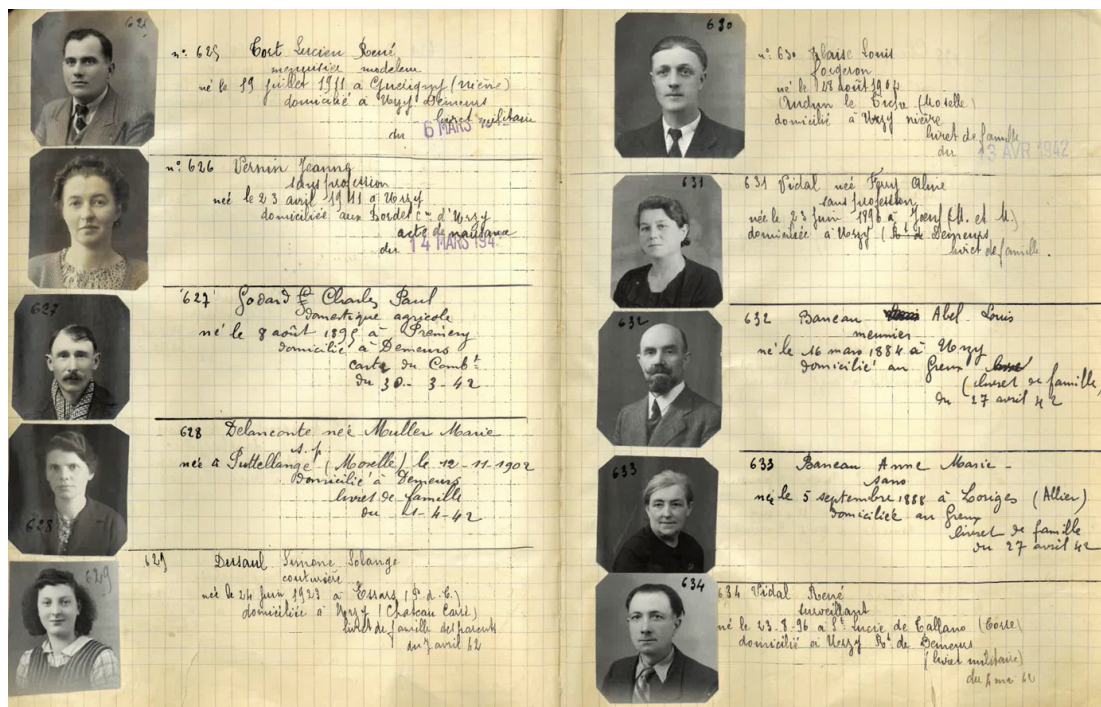 625
n° 625 Tort Lucien René
menuisier modeleur
né le 19 juillet 1911 à Guérigny (Nièvre)
domicilié à Urzy Demeurs
livret militaire
du 6 MARS
n° 626 Vernin Jeanne
sans profession
née le 23 avril 1911 à Urzy
domiciliée aux Bordes Cne d'Urzy
acte de naissance
du 14 MARS 194
627
627 Godard Charles Paul
domestique agricole
né le 8 août 1895 à Prémery
domicilié à Demeurs
carte du Combt
du 30-3-42
628
628 Delanconte née Muller Marie
s.p.
née à Puttellange (Moselle) le 12-11-1902
Domicilié à Demeurs
livret de famille
du 1-4-42
629
629 Dusaul Simone Solange
couturière
née le 24 juin 1923 à Essars (P.d.C.)
domiciliée à Urzy (Chateau Carré)
livret de famille des parents
du 7 avril 42
630
n° 630 Blaise Louis
forgeron
né le 28 août 1904
Audun le Tiche (Moselle)
domicilié à Urzy nièvre
livret de famille
du 13 AVR 1942
631
631 Vidal née Ferry Aline
sans profession
née le 23 juin 1896 à Joeuf (M. et M.)
domiciliée à Urzy (Rt de Demeurs
livret de famille.
632
632 Baneau Abel-Louis
meunier
né le 16 mars 1884 à Urzy
domicilié au Greux
(livret de famille
du 27 avril 42
633
633 Baneau Anne Marie-
sans
née le 5 septembre 1888 à Loriges (Allier)
Domiciliée au Greux
livret de famille
du 27 avril 42
634
634 Vidal René
surveillant
né le 23-8-96 à Ste Lucie de Tallano (Corse)
domicilié à Urzy Rt de Demeurs
(livret militaire)
du 4 mai 42